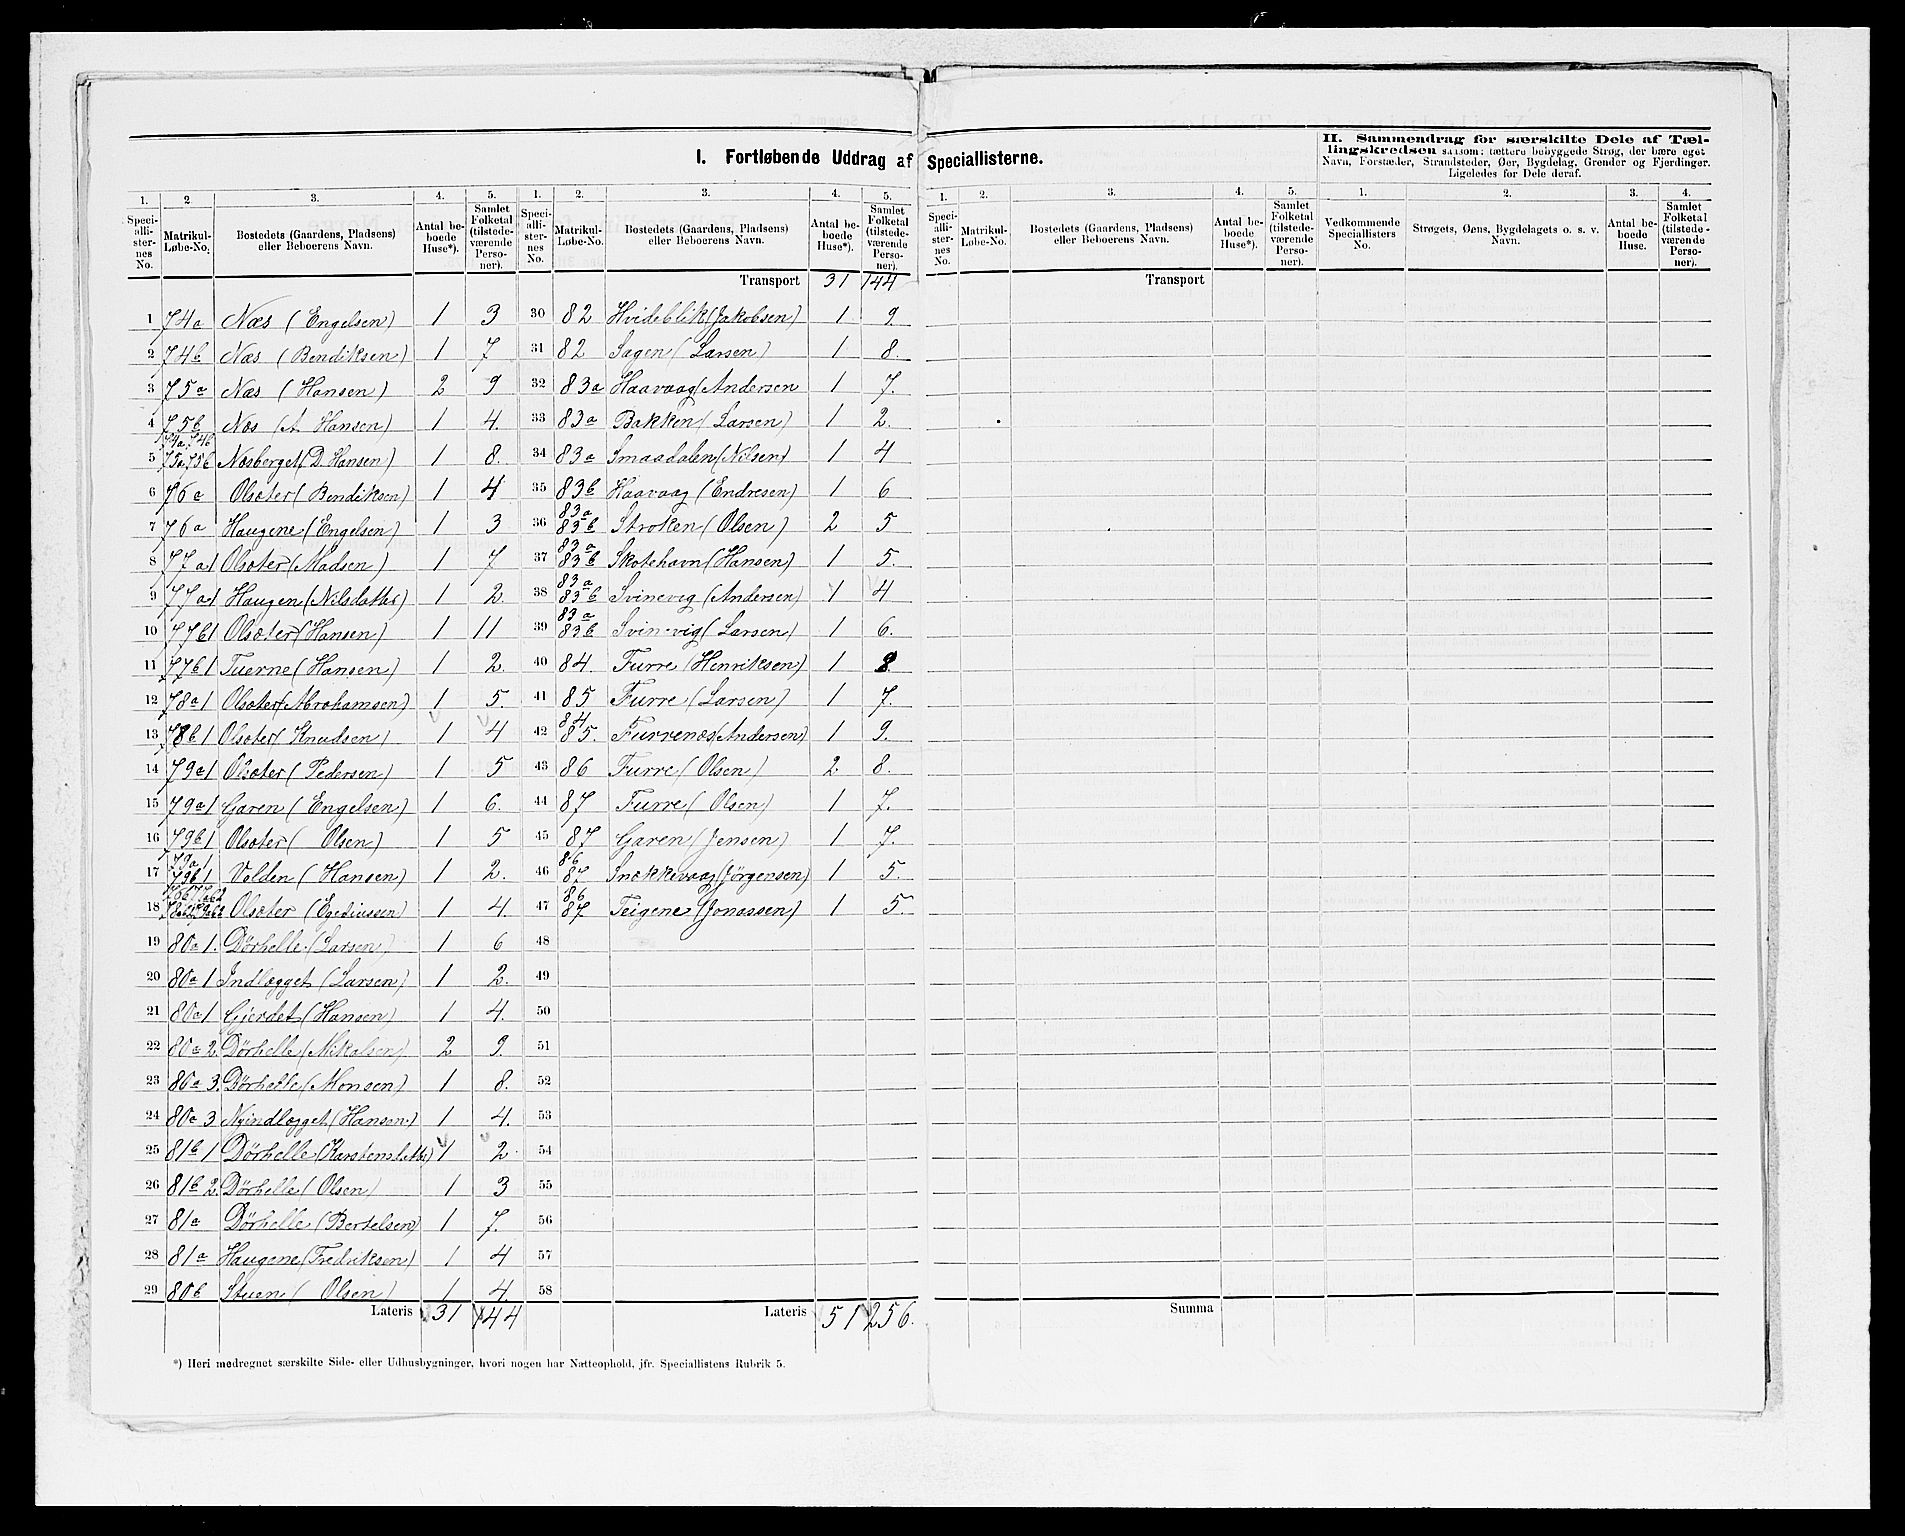 I. Fortløbende Uddrag af Speciallisterne.
II. Sammendrag for særskilte Dele af Tæl-
lingskredsen saasom: tættere bebyggede Strøg, der bære eget
Navn, Forstæder, Strandsteder, Øer, Bygdelag, Grender og Fjerdinger.
Ligeledes for Dele deraf.
1. 2. 3. 4. 5. 1. 2. 3. 4. 5. 1. 2. 3. 4. 5. 1. 2. 3. 4.
Speci-allister-nes No. Matrikul-Løbe-No. Bostedets (Gaardens, Pladsens) eller Beboerens Navn. Antal beboede Huse*). Samlet Folketal (tilstede-værende Perso-ner).
Speci-allister-nes No. Matrikul-Løbe-No. Bostedets (Gaardens, Pladsens) eller Beboerens Navn. Antal beboede Huse*). Samlet Folketal (tilstede-værende Perso-ner).
Speci-allister-nes No. Matrikul-Løbe-No. Bostedets (Gaardens, Pladsens) eller Beboerens Navn. Antal beboede Huse*). Samlet Folketal (tilstede-værende Perso-ner).
Vedkommende Speciallisters No. Strøgets, Øens, Bygdelagets o. s. v. Navn. Antal beboede Huse. Samlet Folketal (tilstede-værende Perso-ner).
Transport 31 144 Transport
1 74a Næs (Engelsen) 1 3
2 74b Næs (Bendiksen) 1 7
3 75a Næs (Hansen) 2 9
4 75b Næs (A Hansen) 1 4.
5 74a, 74b 75a, 75b Næsberget (D. Hansen) 1 8.
6 76a Olsæter (Bendiksen) 1 4
7 76a Haugene (Engelsen) 1 3
8 77a1 Olsæter (Madsen) 1 7
9 77a1 Haugen (Nilsdatter) 1 2
10 77b1 Olsæter (Hansen) 1 11
11 77b1 Tuerne (Hansen) 1 2.
12 78a1 Olsæter (Abrahamsen) 1 5.
13 78b1 Olsæter (Knudsen) 1 4
14 79a1 Olsæter (Pedersen) 1 5
15 79a1 Garen (Engelsen) 1 6.
16 79b1 Olsæter (Olsen) 1 5
17 79a1 79b1 Volden (Hansen) 1 2.
18 Olsæter (Egediussen) 1 4.
19 80a1. Dørhelle (Larsen) 1 6
20 80a1 Indlægget (Larsen) 1 2.
21 80a1 Gjerdet (Hansen) 1 4.
22 80a2. Dørhelle (Mikalsen) 2 9.
23 80a3. Dørhelle (Monsen) 1 8.
24 80a3 Nyindlægget (Hansen) 1 4.
25 81b1 Dørhelle (Karstensdatter) 1 2
26 81b2. Dørhelle (Olsen) 1 3
27 81a Dørhelle (Bertelsen) 1 7.
28 81a Haugene (Fredriksen) 1 4
29 80b Stuen (Olsen) 1 4.
Lateris 31 144
30 82 Hvideblik (Jakobsen) 1 9.
31 82 Sagen (Larsen) 1 8.
32 83a Haavaag (Andersen 1 7.
33 83a Bakken (Larsen) 1 2.
34 83a Smaadalen (Nilsen) 1 4
35 83b Haavaag (Endresen) 1 6
36 83a 83b Stroken (Olsen) 2 5
37 83a 83b Skotehavn (Hansen) 1 5.
38 83a 83b Svinevig (Andersen) 1 4
39 83a 83b Svinevig (Larsen) 1 6.
40 84. Furre (Henriksen) 1 8.
41 85 Furre (Larsen) 1 7.
42 84 85. Furrenæs (Andersen) 1 9.
43 86 Furre (Olsen) 2 8.
44 87 Furre (Olsen) 1 7.
45 87 Garen (Jensen) 1 7.
46 86 87 Snækkevaag (Jørgensen) 1 5.
47 86 87 Teigene (Jonassen) 1 5.
48
49
50
51
52
53
54
55
56
57
58
Lateris 51 256.
Summa
*) Heri medregnet særskilte Side- eller Udhusbygninger, hvori nogen har Natteophold, jfr. Speciallistens Rubrik 5.